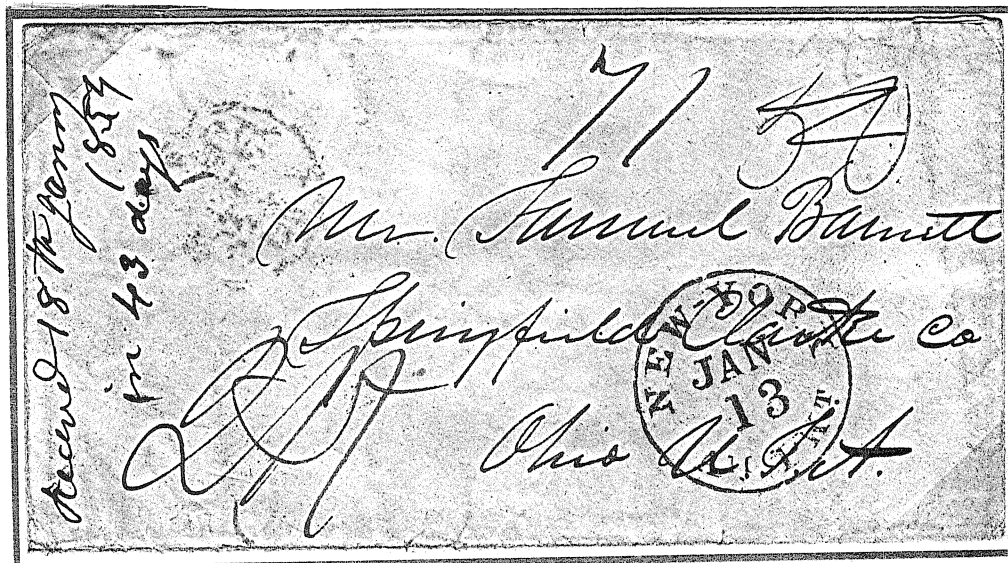 Received 18th Janry
1854
in 43 days
71
Mr. Samuel Barnett
Springfield Clarke Co
Ohio U. St.
NEW-YOR
JAN
13